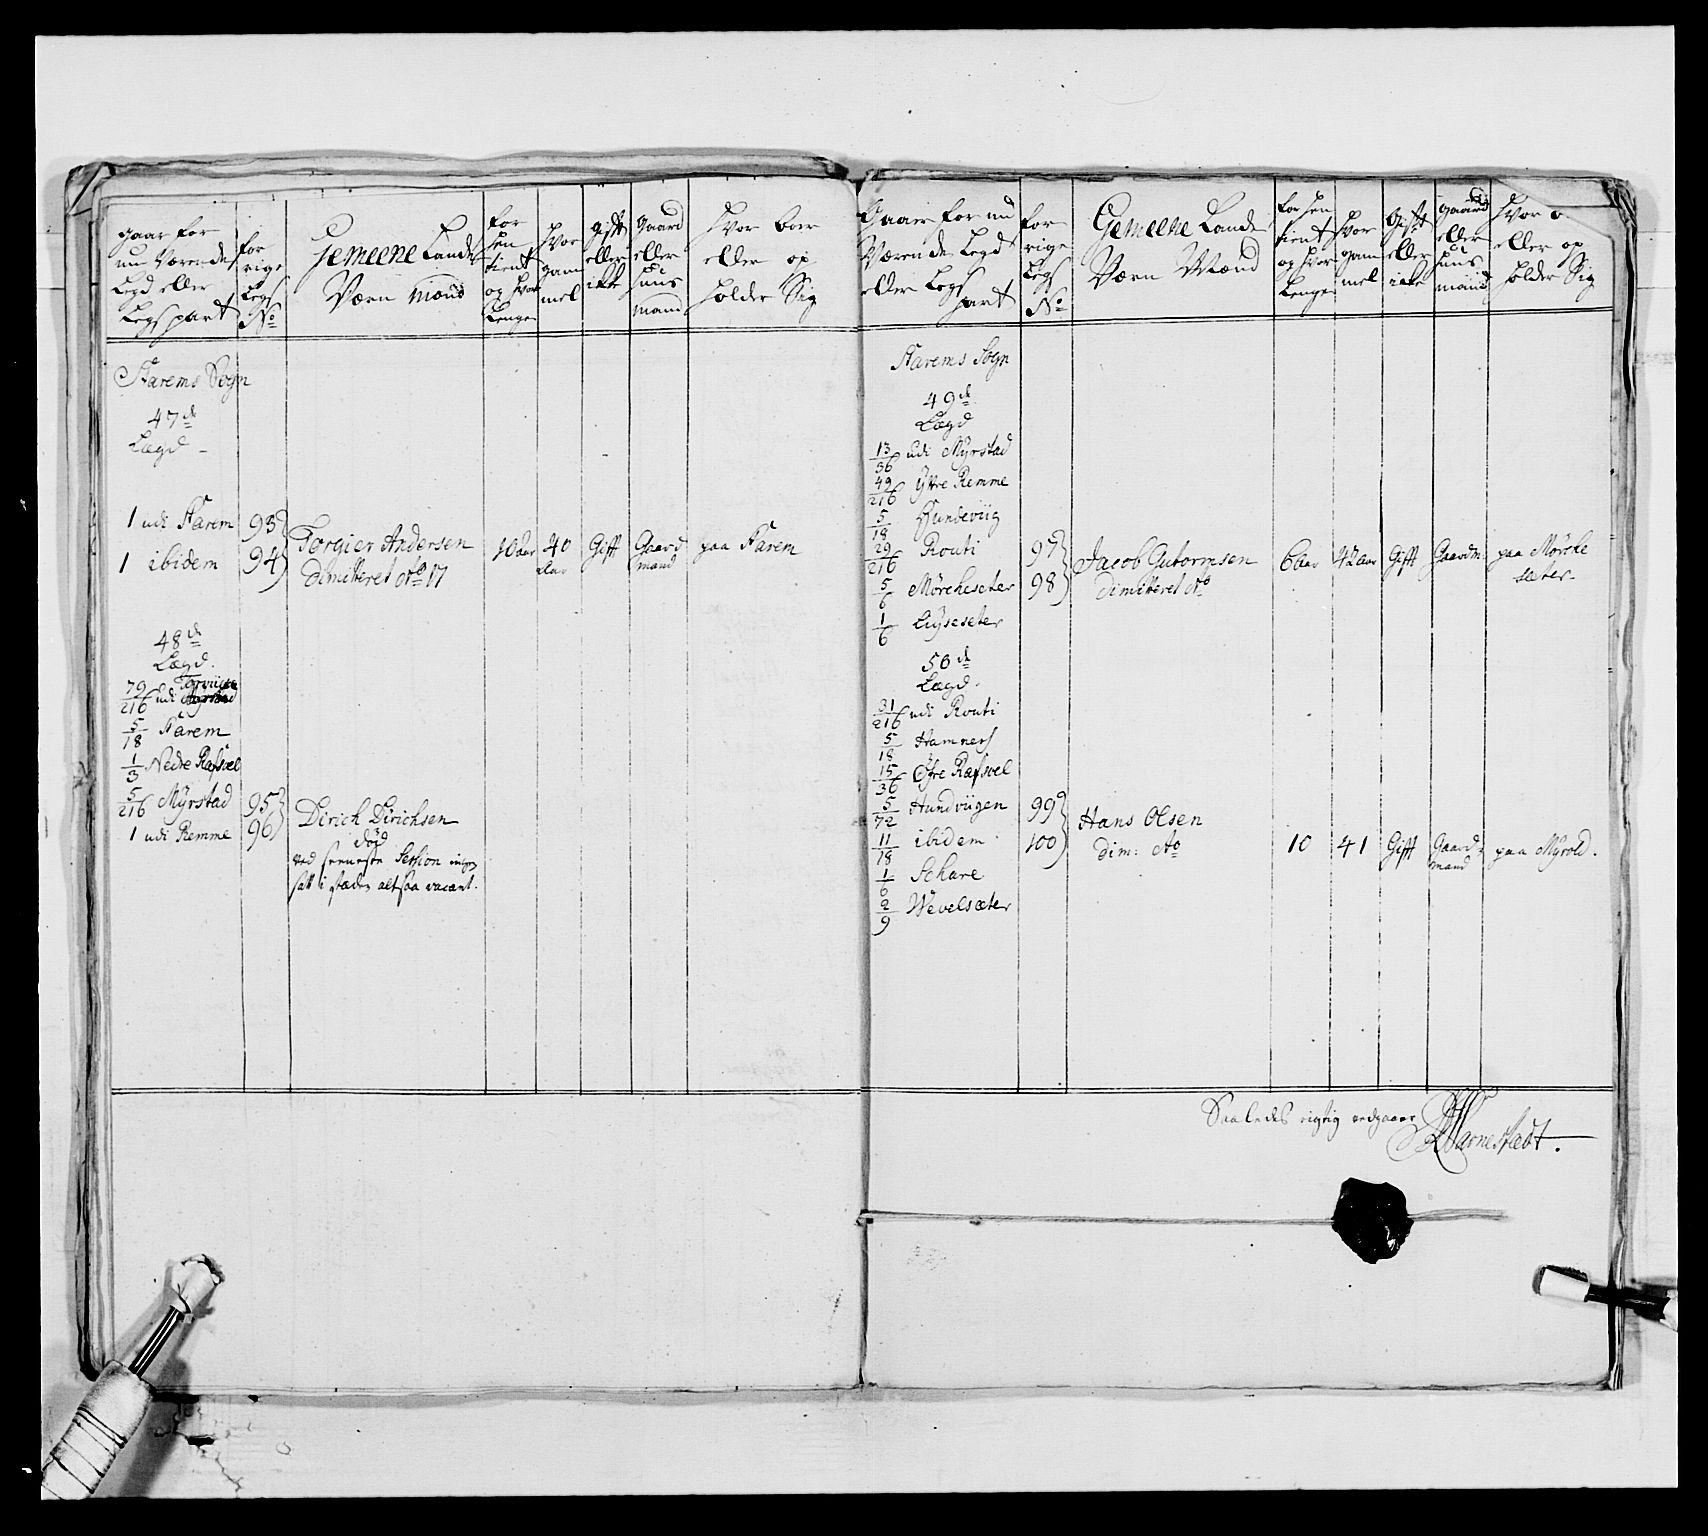 gaar for
nu Værende
Legd eller
Legs part
for
rige
Legs
No
Gemeene Lande
Værn Mænd
for
hen
tient
og hvor
Lenge
hvor
gam
mel
gift
eller
ikke
gaard
eller
huus
mand
hvor boer
eller op
holder Sig
Harems Sogn
47de
Lægd
1 udi Harem 93
1 ibidem 94
Torgier Andersen
dimitteret No 17
10 aar
40
aar
Gift
Gaard
mand
paa Harem
48de
Lægd.
79/216 udi
5/18 Harem
1/3 Nedre Ræfsvel
5/216 Myrstad 95
1 udi Remme 96
Dirich Dirichsen
död
ved seeneste Session ingen
satt i stæden altsaa vacant.
Gaar for nu
Værende Legd
eller Legs
part
for
rige
Legs
No
Gemeene Lande
Værn Mænd
for hen
tient
og hvor
Lenge
hvor
gam
mel
Gift
eller
ikke
gaard
eller
huus
mand
hvor
eller op
holder Sig
Harems Sogn
49de
Lægd
13/36 udi Myrstad
49/216 Yttre Remme
5/18 Hundeviig
29/216 Routi 97
5/6 Mörcheseter 98
1/6 Luseseter
Jacob Gutormsen
dimitteret No
6 aar
42 aar
Gifft
Gaardm:
paa Mörche
seter
50de
Lægd.
31/216 udi Routi
5/18 Hamners
15/36 Öfre Ræfsvel
5/72 Hundviigen 99
11/18 ibidem 100
1/6 Schare
2/9 Wevelsæter
Hans Olsen
dim: No
10
41
Gifft
Gaard
mand
paa Myrold.
Saaledes rigtig vedgaaer